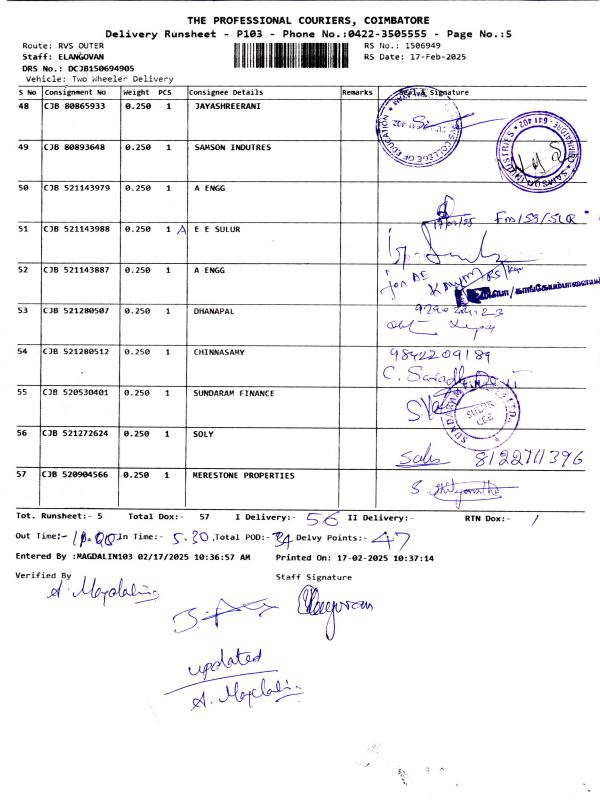 THE PROFESSIONAL COURIERS, COIMBATORE
Delivery Runsheet - P103 - Phone No.:0422-3505555 - Page No.:5
Route: RVS OUTER
RS No.: 1506949
Staff: ELANGOVAN
RS Date: 17-Feb-2025
DRS No.: DCJB150694905
Vehicle: Two Wheeler Delivery
S No Consignment No Weight PCS Consignee Details Remarks Seal & Signature
48 CJB 80865933 0.250 1 JAYASHREERANI
COLLEGE OF EDUCATION
49 CJB 80893648 0.250 1 SAMSON INDUTRES
SAMSON INDUSTRIES 641 402
50 CJB 521143979 0.250 1 A ENGG
51 CJB 521143988 0.250 1 A E E SULUR
52 CJB 521143887 0.250 1 A ENGG
53 CJB 521280507 0.250 1 DHANAPAL
54 CJB 521280512 0.250 1 CHINNASAMY
9842209189
55 CJB 520530401 0.250 1 SUNDARAM FINANCE
56 CJB 521272624 0.250 1 SOLY
8122711396
57 CJB 520904566 0.250 1 MERESTONE PROPERTIES
Tot. Runsheet:- 5 Total Dox:- 57 I Delivery:- 56 II Delivery:- RTN Dox:- 1
Out Time:- In Time:- 5.30 ,Total POD:- 34 Delvy Points:- 47
Entered By :MAGDALIN103 02/17/2025 10:36:57 AM Printed On: 17-02-2025 10:37:14
Verified By Staff Signature
A. Magdalin
updated
A. Magdalin